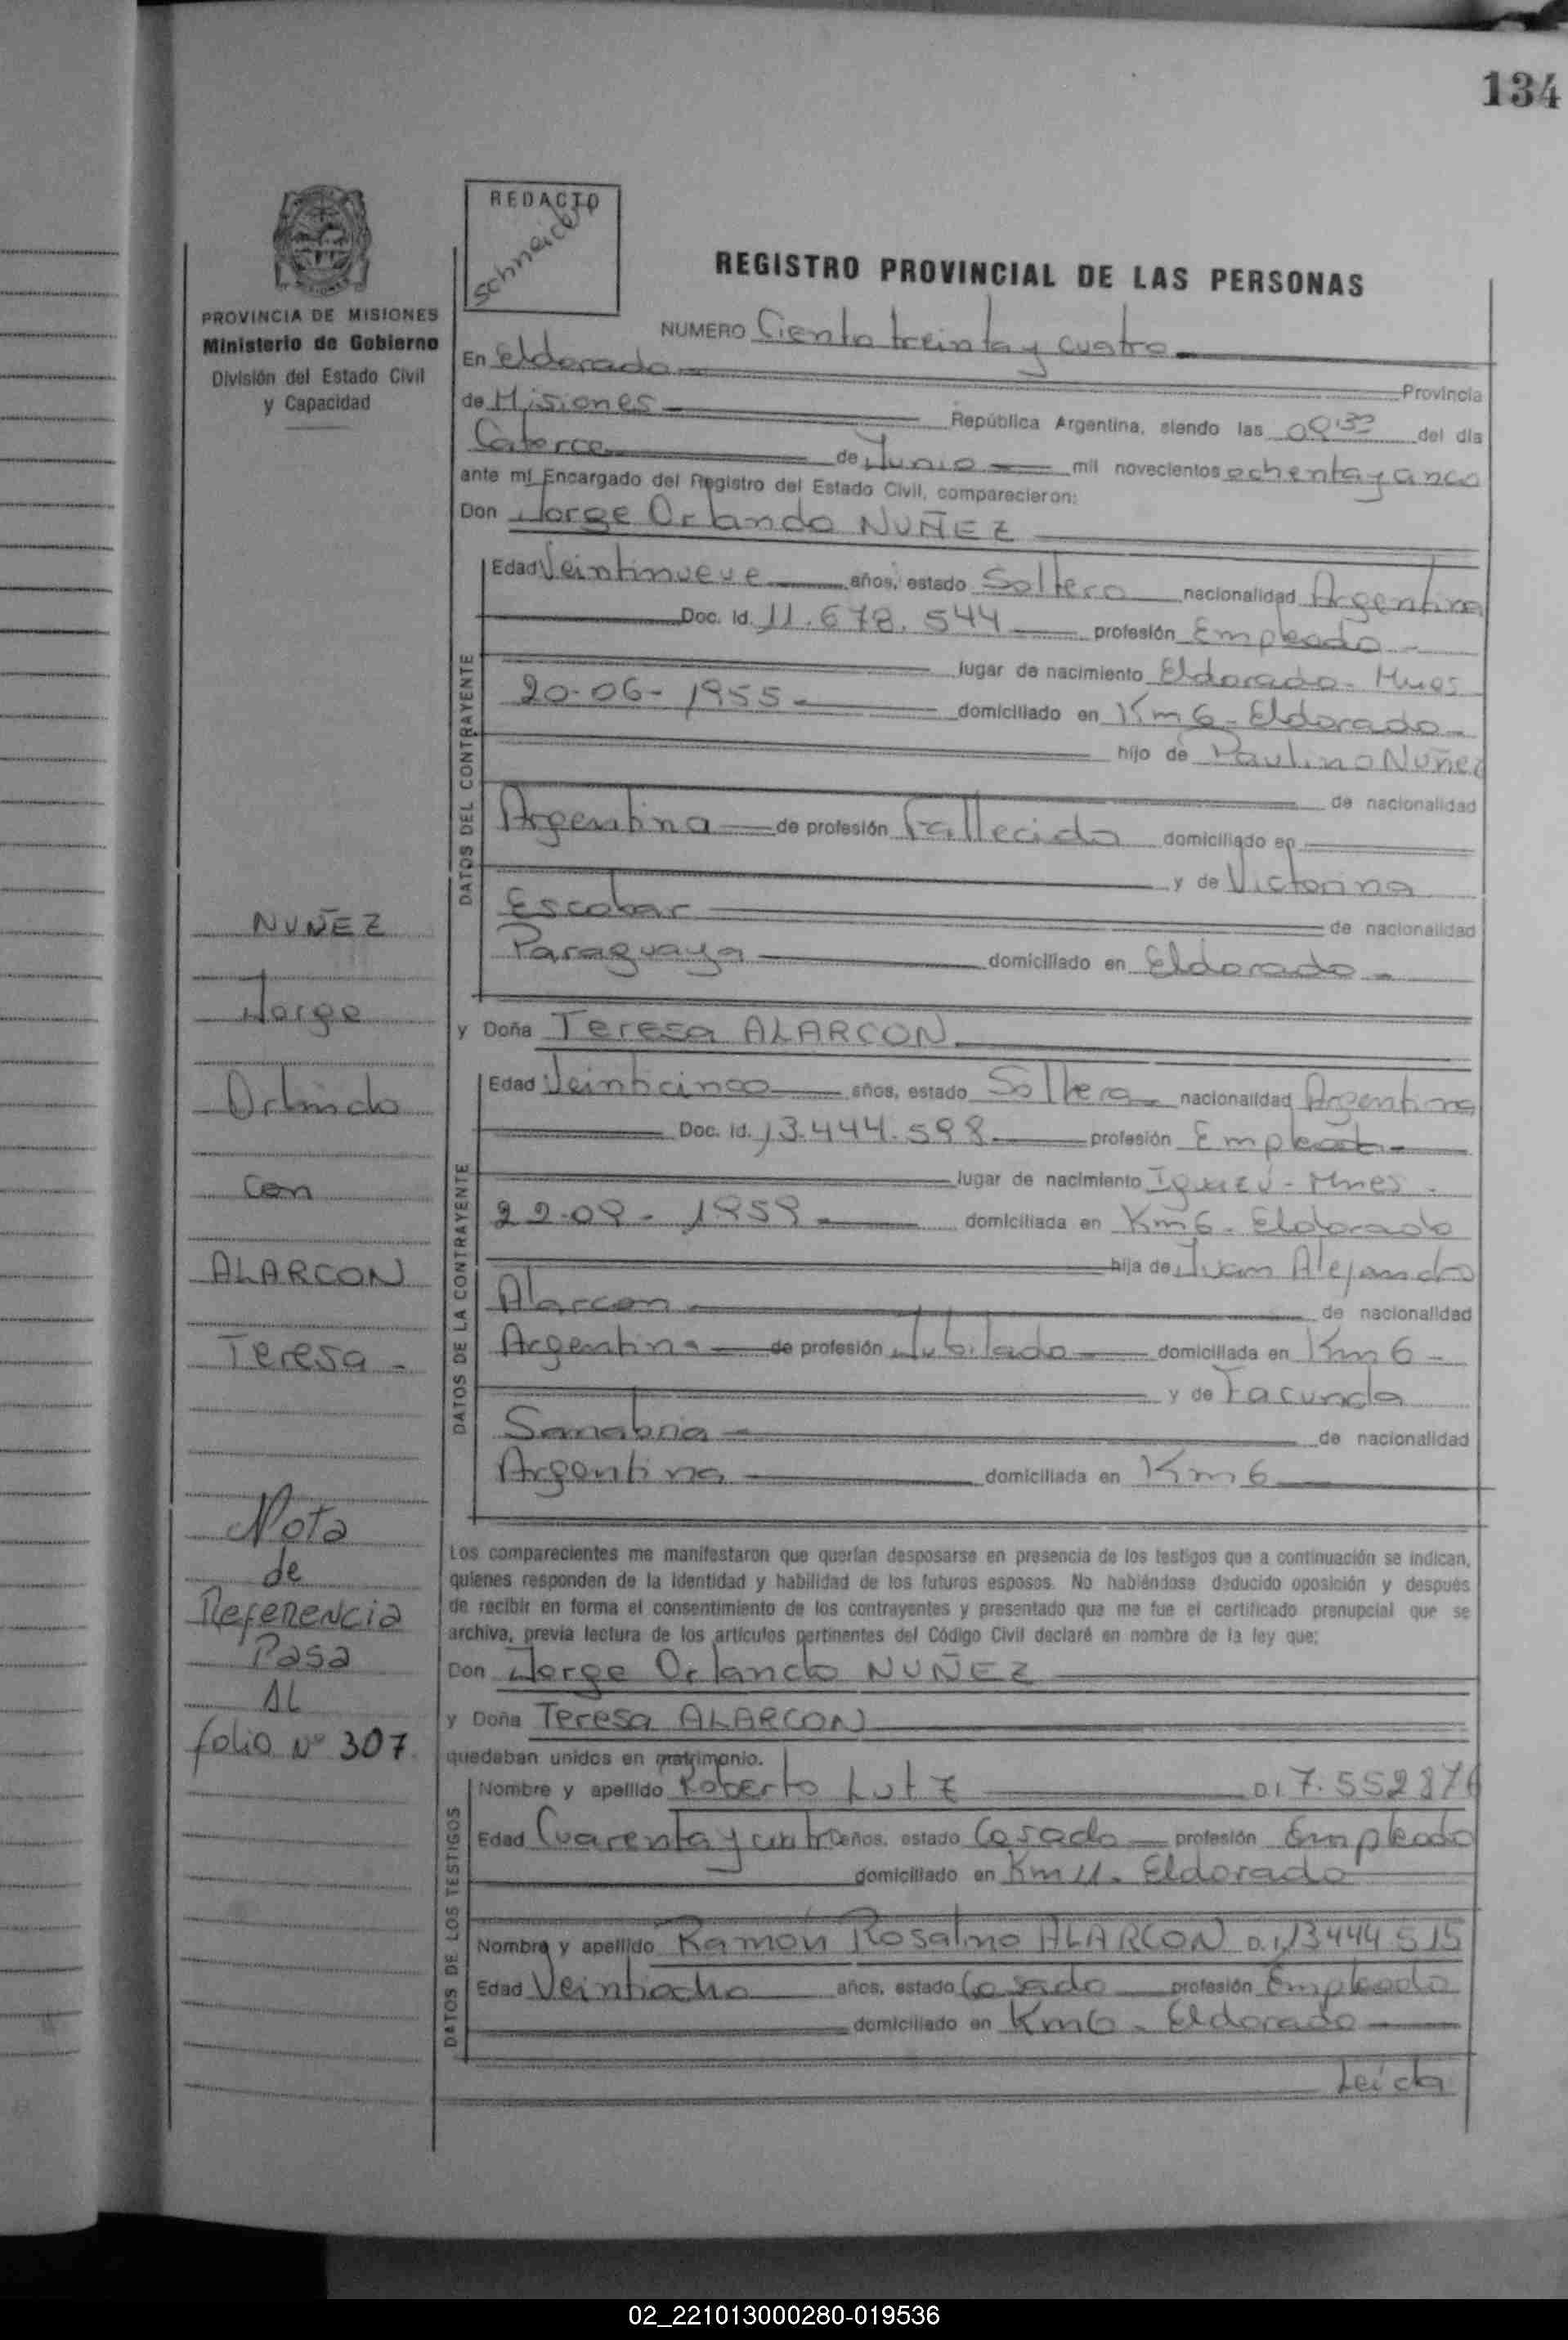 134
REDACTO
Schneider
REGISTRO PROVINCIAL DE LAS PERSONAS
PROVINCIA DE MISIONES
Ministerio de Gobierno
División del Estado Civil
y Capacidad
NUMERO Ciento treinta y cuatro
En Eldorado Provincia
de Misiones República Argentina, siendo las del día
Catorce de Junio mil novecientos ochenta y cinco
ante mi Encargado del Registro del Estado Civil, comparecieron:
Don Jorge Orlando NUÑEZ
DATOS DEL CONTRAYENTE
Edad Veintinueve años, estado Soltero nacionalidad Argentina
Doc. Id. 11.678.544 profesión Empleado
lugar de nacimiento Eldorado - Mnes
20-06-1955 domiciliado en Km 6 - Eldorado
hijo de Paulino Nuñez
de nacionalidad
Argentina de profesión Fallecido domiciliado en
y de Victorina
Escobar de nacionalidad
Paraguaya domiciliado en Eldorado -
y Doña Teresa ALARCON
DATOS DE LA CONTRAYENTE
Edad Veinticinco años, estado Soltera nacionalidad Argentina
Doc. Id. 13.444.598 profesión Empleada
lugar de nacimiento Iguazú - Mnes -
22-09-1959 domiciliada en Km 6 - Eldorado
hija de Juan Alejandro
Alarcon de nacionalidad
Argentina de profesión Jubilado domiciliada en Km 6 -
y de Facunda
Sanabria de nacionalidad
Argentina domiciliada en Km 6
NUÑEZ
Jorge
Orlando
con
ALARCON
Teresa -
Nota
de
Referencia
Pasa
AL
folio Nº 307
Los comparecientes me manifestaron que querían desposarse en presencia de los testigos que a continuación se indican,
quienes responden de la identidad y habilidad de los futuros esposos. No habiéndose deducido oposición y después
de recibir en forma el consentimiento de los contrayentes y presentado que me fue el certificado prenupcial que se
archiva, previa lectura de los artículos pertinentes del Código Civil declaré en nombre de la ley que:
Don Jorge Orlando NUÑEZ
y Doña Teresa ALARCON
quedaban unidos en matrimonio.
DATOS DE LOS TESTIGOS
Nombre y apellido Roberto Lutz D.I 7.552876
Edad Cuarenta y cuatro años, estado Casado profesión Empleado
domiciliado en Km 11 - Eldorado
Nombre y apellido Ramón Rosalino ALARCON D.I. 13444515
Edad Veintiocho años, estado Casado profesión Empleado
domiciliado en Km 6 - Eldorado
Leída
02_221013000280-019536